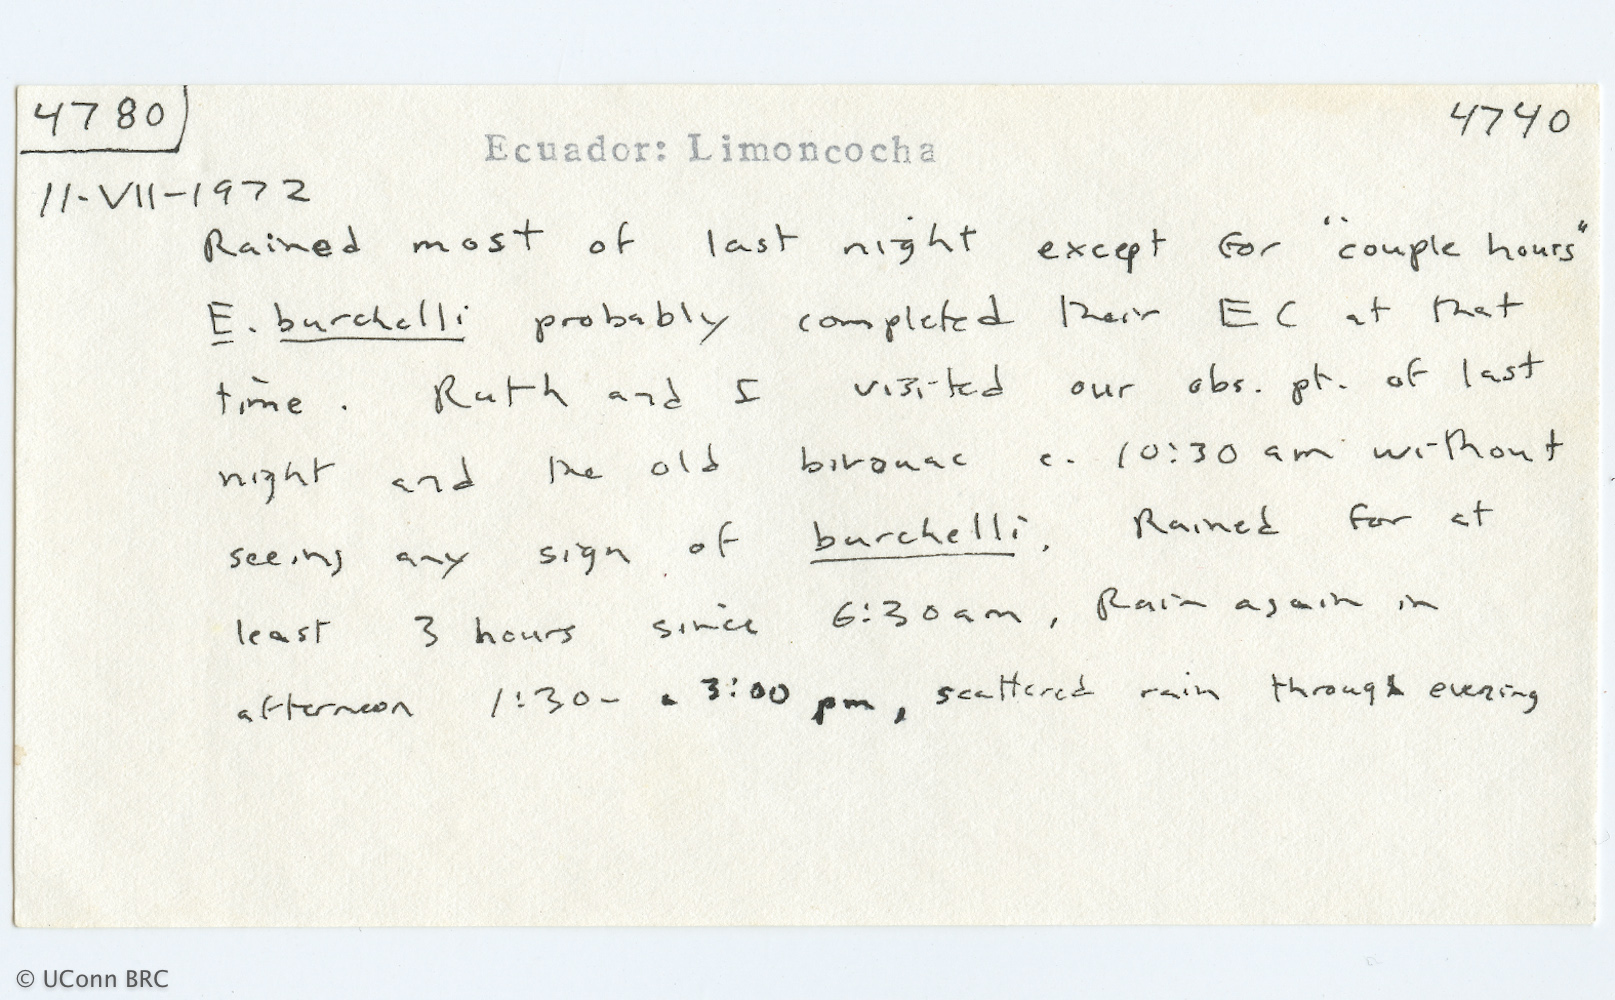 4780
4740
Ecuador: Limoncocha
11-VII-1972
Rained most of last night except for "couple hours"
E. burchelli probably completed their EC at that
time. Ruth and I visited our obs. pt. of last
night and the old bivouac c. 10:30 am without
seeing any sign of burchelli. Rained for at
least 3 hours since 6:30 am, Rain again in
afternoon 1:30- 3:00 pm, scattered rain through evening
© UConn BRC